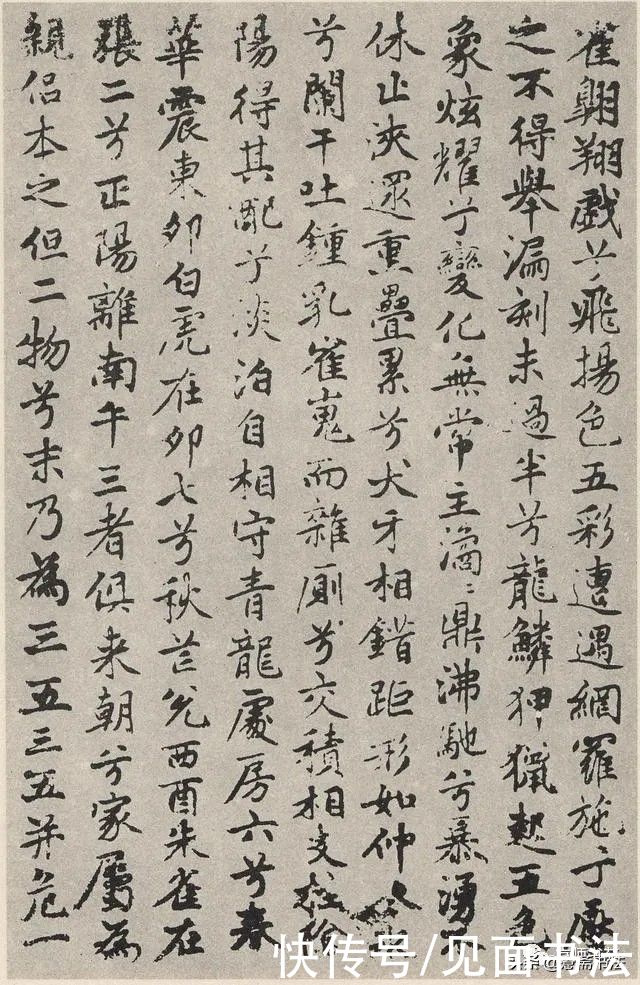 雀翱翔戲兮飛揚色五彩遭遇網羅施兮壓
之不得舉漏刻未過半兮龍鱗狎獵起五色
象炫耀兮變化無常主滴〻鼎沸馳兮暴湧不
休止浹還重疊累兮犬牙相錯距形如仲冬
兮闌干吐鍾乳崔嵬而雜廁兮交積相支柱陰
陽得其配兮淡泊自相守青龍處房六兮春
華震東卯白虎在卯七兮秋芒兌西酉朱雀在
張二兮正陽離南午三者俱来朝兮家屬為
親侶本之但二物兮末乃為三五三五并危一
快传号/见面书法